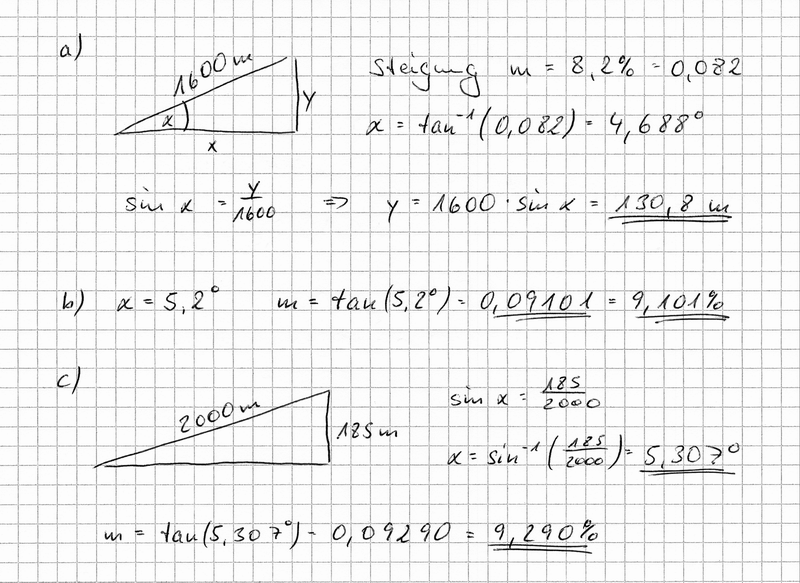 a)
1600 m
α
x
y
Steigung m = 8,2% = 0,082
α = tan⁻¹(0,082) = 4,688°
sin α = y/1600 => y = 1600 · sin α = 130,8 m
b) α = 5,2° m = tan(5,2°) = 0,09101 = 9,101%
c)
2000 m
185 m
sin α = 185/2000
α = sin⁻¹(185/2000) = 5,307°
m = tan(5,307°) = 0,09290 = 9,290%